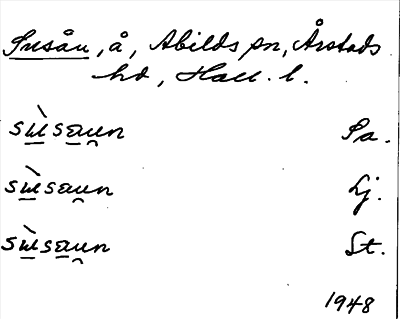 Susån, å, Abilds sn, Årstads
hd, Hall. l.
sùsaun Sa.
sùsaun Lj.
sùsaun St.
1948